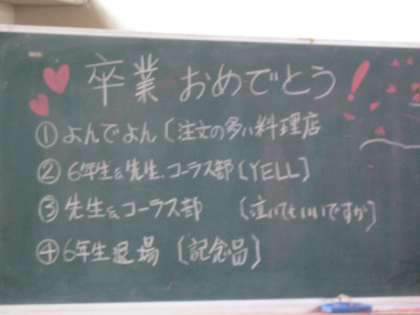 卒業おめでとう!
①よんでよん〔注文の多い料理店
②6年生&先生.コーラス部〔YELL〕
③先生&コーラス部 〔泣いてもいいですか〕
④6年生退場〔記念品〕